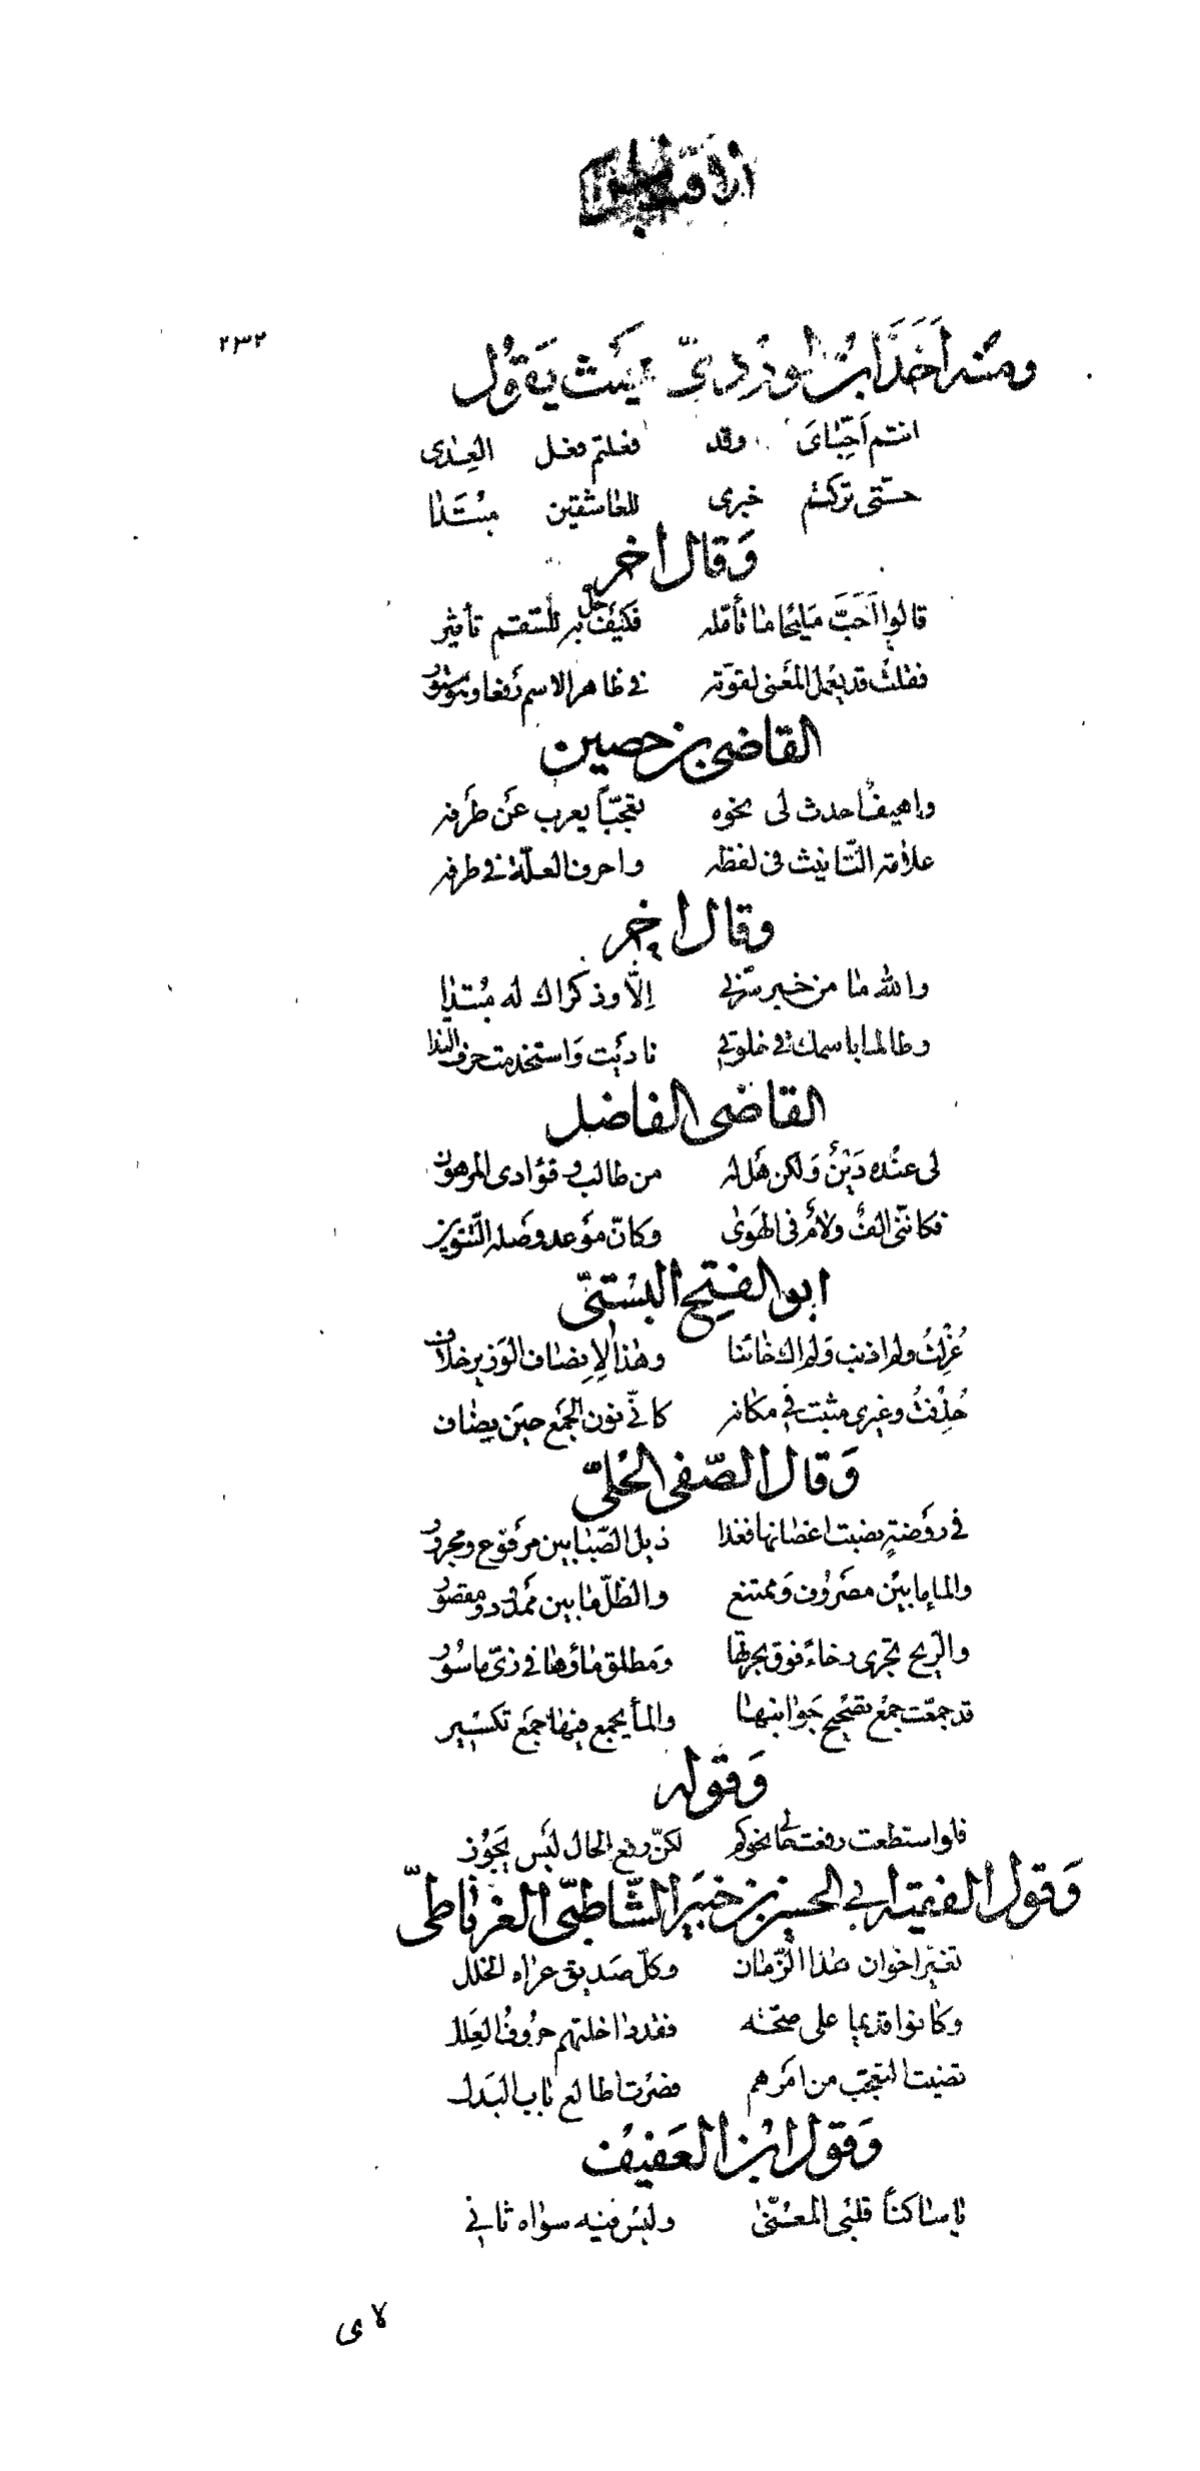 الاقتباس
٢٣٢
ومنه اخذ ابن الوردي حيث يقول
انتم احبّاى وقد فعلتم فعل العِدى
حتّى تركتم خبرى للعاشقين مبتدا
وَقال اخر
قالوا اَحَبَّ مَليحًا ما تأمّله فكَيفَ حلّ به للسّقم تأثير
فقلتُ قد يعمل المعَنى لقوّته في ظاهر الاسم رَفعا وهو مستور
القاضى بن حصين
واهيفٌ احدث لى نحوه تعجّبًا يعرب عَن ظرَفه
علامة التّانيث فى لفظه واحرف العلّة في طرفه
وقال اخر
والله ما من خبر سرّني اِلّا وذكراك له مُبتدا
وطالما باسمك في خلوتي نادَيت وَاستخدمت حرف الندا
القاضى الفاضل
لى عنده دَيْنٌ وَلكن هَل له من طالب وفؤادى المرهون
فكانّنى الفٌ ولامٌ فى الهَوىٰ وكانّ موَعد وصَله التّنوين
ابو الفتح البُستىّ
عُزِلتُ ولم اذنب وَلم اك خائنا وهٰذا لاِنصاف الوَزير خلاف
حُذِفتُ وغيرى مثبت في مكانه كانّي نون الجمَع حيَن يضاف
وَقال الصّفى الحُلىّ
في روَضةٍ نصبت اغصانها فغدا ذيل الصّبا بين مرَفوع ومجرور
والماء ما بيَن مصَروُف وَممتنع والظلّ ما بين ممَدُود ومقصور
والرّيح تجرى رخاءً فوق بحرتها وَمطلق ماؤها في زىّ ماسُور
قد جمعّت جمُع تصَحيح جَوانبها والماء يجمع فيها جمَع تكسَير
وَقوله
فلو استطعت رفعت حالي نحوكم لكنّ رفع الحال ليَس يجَوُز
وَقول الفقيه ابي الحسين بن جبَير الشّاطبّى الغرناطىّ
تغيّر اخوان هذا الزّمان وكلّ صَديق عراه الخلل
وكانوا قديما على صحّة فقد داخلتهم حرُوفُ العِلل
قضيت التعجّب من امَرهم فصَرت اطالع باب البَدل
وَقول ابن العَفيف
يا ساكنًا قلبَى المعُنّىٰ وليَس فيه سواه ثاني
لاى